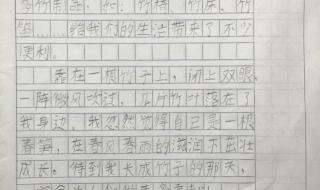 的竹制品，如：竹椅、竹床、竹
……给我们的生活带来了不少
便利。
靠在一根竹子上，闭上双眼，
一阵微风吹过，几片竹叶落在了
我身边。我忽然觉得自己是一根
春笋，在春风春雨的滋润下茁壮
成长。待到我长成竹子的那天，